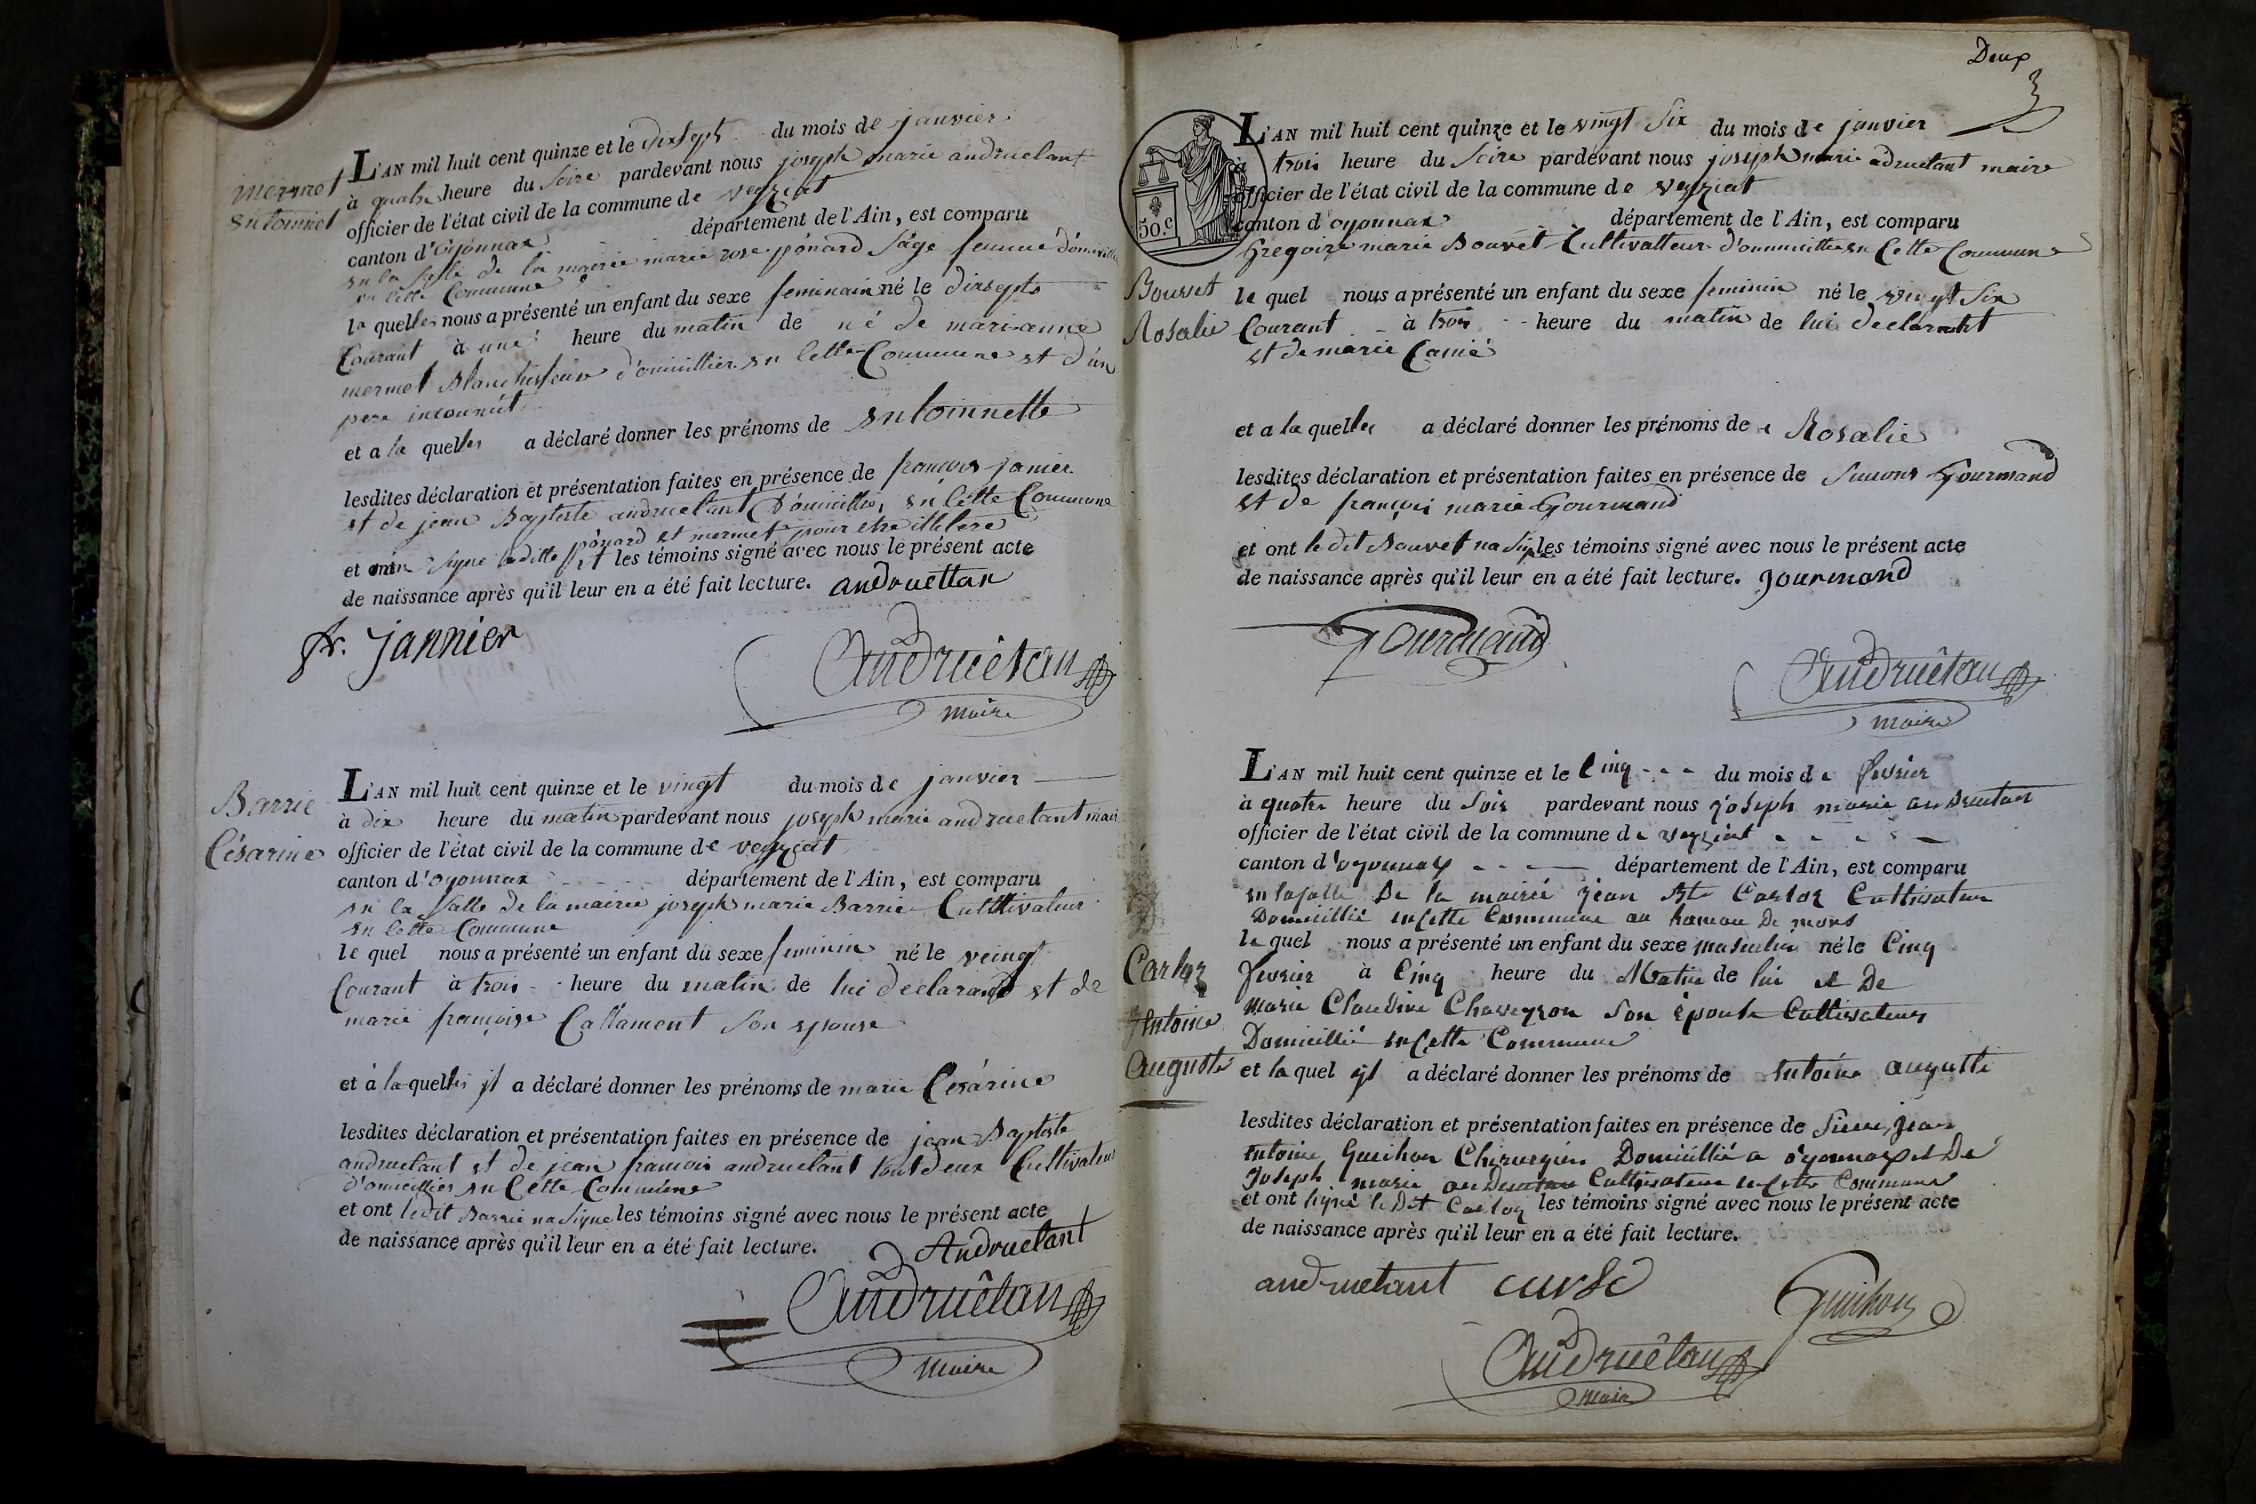 mermet
antoinnet
L'AN mil huit cent quinze et le dixsept du mois de janvier
à quatre heure du Soire pardevant nous joseph marie andruetant
officier de l'état civil de la commune de veyziat
canton d'Oyonnax département de l'Ain, est comparu
en la Salle de la mairie marie rose ponard Sage femme d'omicillie
en Cette Commune
la quelles nous a présenté un enfant du sexe feminain né le dixsepts
Courant à une heure du matin de né de marianne
mermet Blanchisseuse d'omicillier en Cette Commune et d'un
pere inconnut
et a la quelles a déclaré donner les prénoms de antoinnette
lesdites déclaration et présentation faites en présence de françois janier
et de jean Baptiste andruetant d'omicillies en Cette Commune
ponard et mermet pour etre illitere
et ont signe laditte et les témoins signé avec nous le présent acte
de naissance après qu'il leur en a été fait lecture. andruettan
fr. jannier
Andruêtan
maire
Barrie
Césarine
L'AN mil huit cent quinze et le vingt du mois de janvier
à dix heure du matin pardevant nous joseph marie andruetant mair
officier de l'état civil de la commune de veyziat
canton d'oyonnax département de l'Ain, est comparu
en la Salle de la mairie joseph marie Barrie Cultivateur
en Cette Commune
le quel nous a présenté un enfant du sexe feminin né le veingt
Courant à trois heure du matin de lui declarant et de
marie françoise Callament Son epouse
et à la quelles il a déclaré donner les prénoms de marie Césárine
lesdites déclaration et présentation faites en présence de jean Baptiste
andruetant et de jean francois andruetant tout deux Cultivateur
d'omicillies en Cette Commune
et ont ledit Barrie na Signe les témoins signé avec nous le présent acte
de naissance après qu'il leur en a été fait lecture.
Andruetant
Andruêtan
maire
Deux
50.c
L'AN mil huit cent quinze et le vingt Six du mois de janvier
à trois heure du Soire pardevant nous joseph marie adruetant maire
officier de l'état civil de la commune de veyziat
canton d'oyonnax département de l'Ain, est comparu
Gregoire marie Bouvet Cultivatteur d'omicillie en Cette Commune
Bouvet
Rosalie
le quel nous a présenté un enfant du sexe feminin né le vingt Six
Courant à trois heure du matin de lui declarant
et de marie Canié
et a la quelles a déclaré donner les prénoms de Rosalie
lesdites déclaration et présentation faites en présence de Simons Gourmand
et de françois marie Gourmand
et ont le dit Bouvet na Signe les témoins signé avec nous le présent acte
de naissance après qu'il leur en a été fait lecture. gourmand
Gourmand
Andruêtan
maire
L'AN mil huit cent quinze et le Cinq du mois de fevrier
à quatre heure du Soir pardevant nous joseph marie andruetan
officier de l'état civil de la commune de veyziat
canton d'oyonnax département de l'Ain, est comparu
en la Salle De la mairie jean Bte Carloz Cultivateur
Domicillié en Cette Commune au hameau De mons
Carloz
Antoine
Auguste
le quel nous a présenté un enfant du sexe masculin né le Cinq
fevrier à Cinq heure du Matin de lui et De
Marie Claudine Chaveyron Son épouse Cultivateurs
Domicillié en Cette Commune
et la quel il a déclaré donner les prénoms de Antoine auguste
lesdites déclaration et présentation faites en présence de Sieur jean
antoine Guichon Chirurgien Domicillié a oyonnax et De
Joseph marie andruetan Cultivateur en Cette Commune
et ont signé le Dit Carloz les témoins signé avec nous le présent acte
de naissance après qu'il leur en a été fait lecture.
andruetant
Guichon
Andruêtan
maire